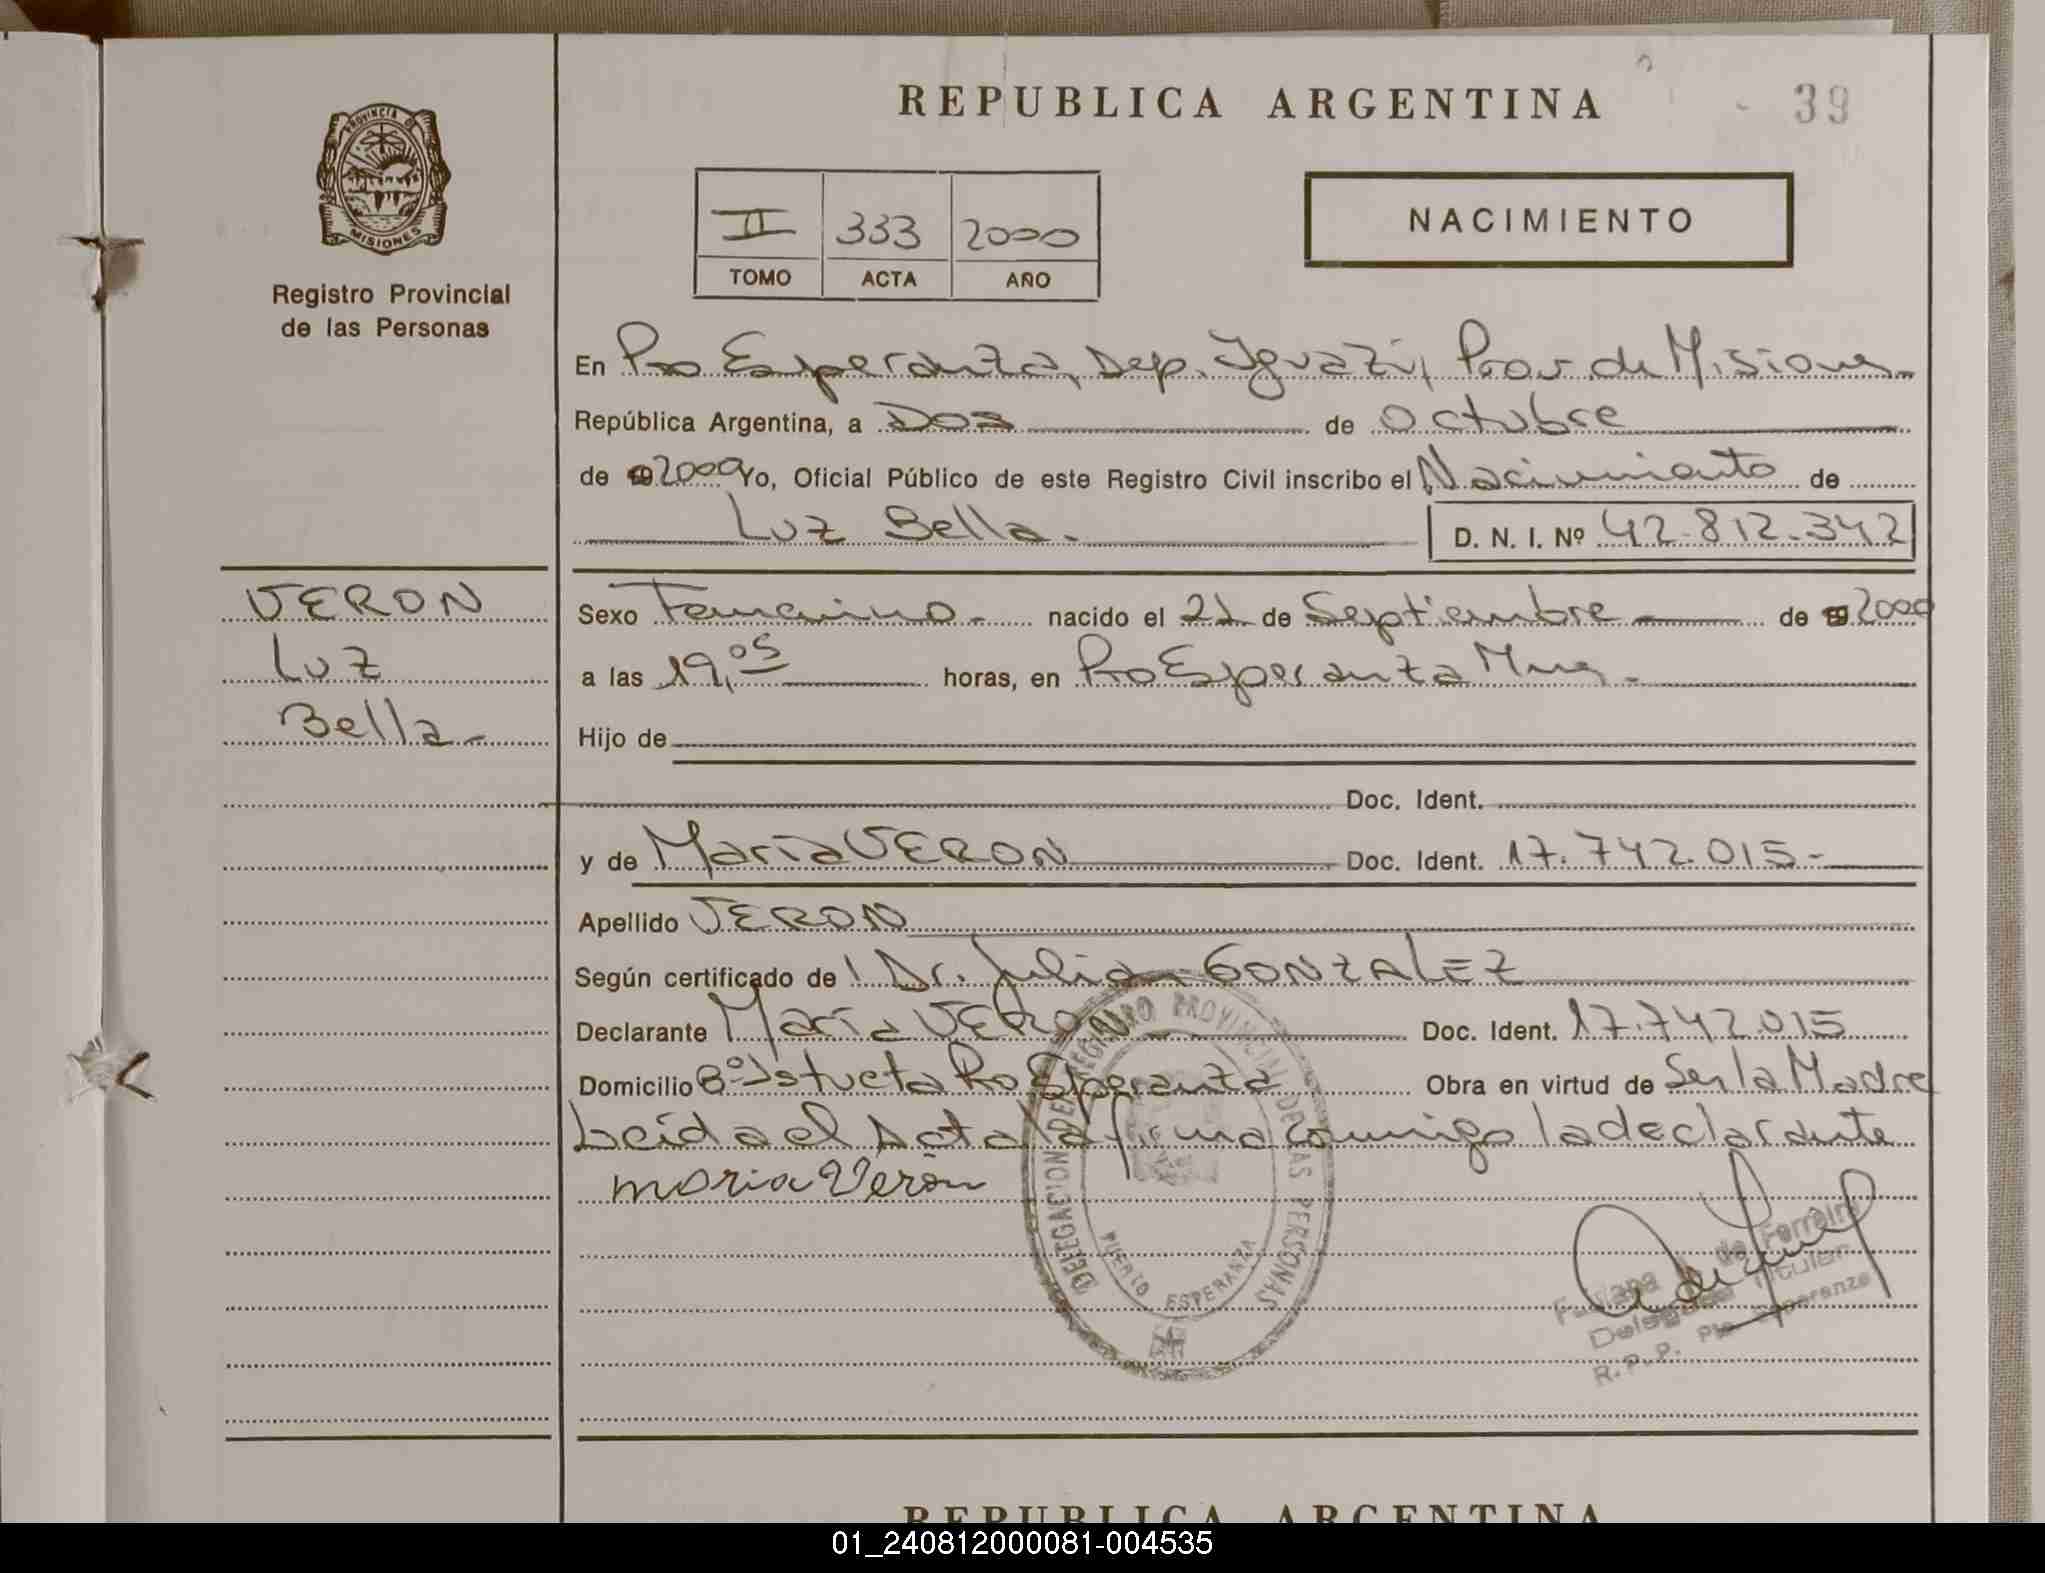 REPUBLICA ARGENTINA
- 39
PROVINCIA D MISIONES
Registro Provincial
de las Personas
II 333 2000
TOMO ACTA AÑO
NACIMIENTO
En Pto Esperanza, Dep. Iguazú, Prov. de Misiones
República Argentina, a Dos de Octubre
de 19 2000 Yo, Oficial Público de este Registro Civil inscribo el Nacimiento de
Luz Bella.
D. N. I. Nº 42.812.342
VERON
Luz
Bella-
Sexo Femenino- nacido el 21 de Septiembre de 19 2000
a las 19,05 horas, en Pto Esperanza Mnes.
Hijo de
Doc. Ident.
y de María VERON Doc. Ident. 17.742.015-
Apellido VERON
Según certificado de Dr. Julio GONZALEZ
Declarante María VERON Doc. Ident. 17.742.015
Domicilio Bº Pto Esperanza Obra en virtud de Ser la Madre
Leída el Acta la firma conmigo la declarante
maria Verón
DELEGACION DEL REGISTRO PROVINCIAL DE LAS PERSONAS
PUERTO ESPERANZA
de Ferreira
Delegada Titular
R.P.P. Pto. Esperanza
REPUBLICA ARGENTINA
01_240812000081-004535